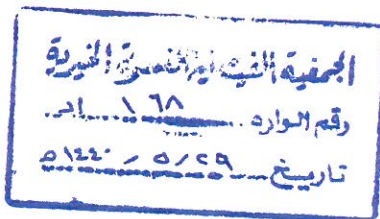 الجمعية الفيصلية الخيرية
رقم الوارد ١٦٨
تاريخ ٢٩ / ٥ / ١٤٤٠ ه